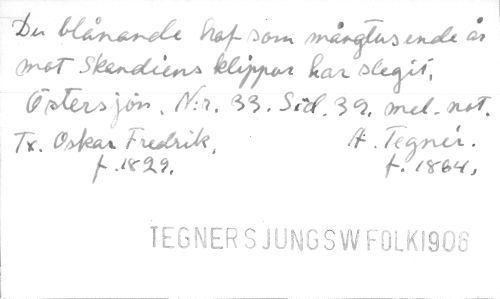 Du blånande haf som mångtusende år
mot Skandiens klippor har slegit,
Östersjön. N:r. 33. Sid. 39. mel. not.
Tx. Oskar Fredrik, A. Tegnér.
f. 1829. f. 1864,
TEGNERS JUNGSW FOLKI906